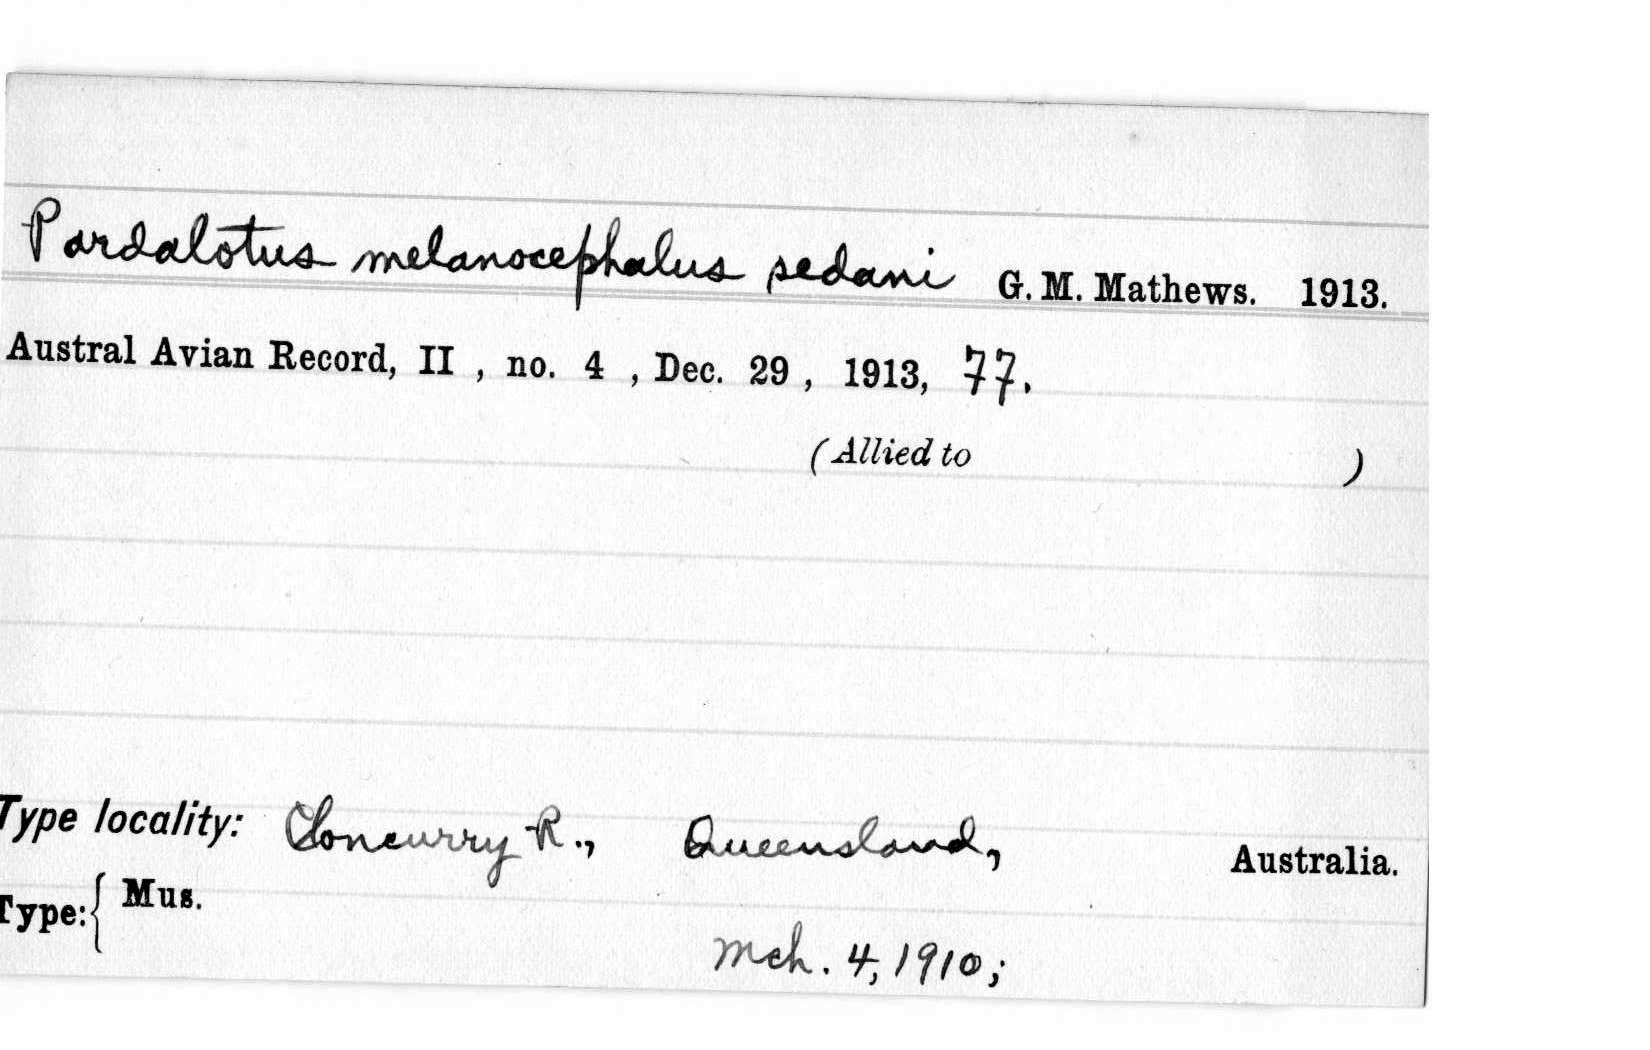 Pardalotus melanocephalus sedani G. M. Mathews. 1913.
Austral Avian Record, II , no. 4 , Dec. 29 , 1913, 77.
(Allied to )
Type locality: Cloncurry R., Queensland, Australia.
Type: { Mus.
Mch. 4, 1910;